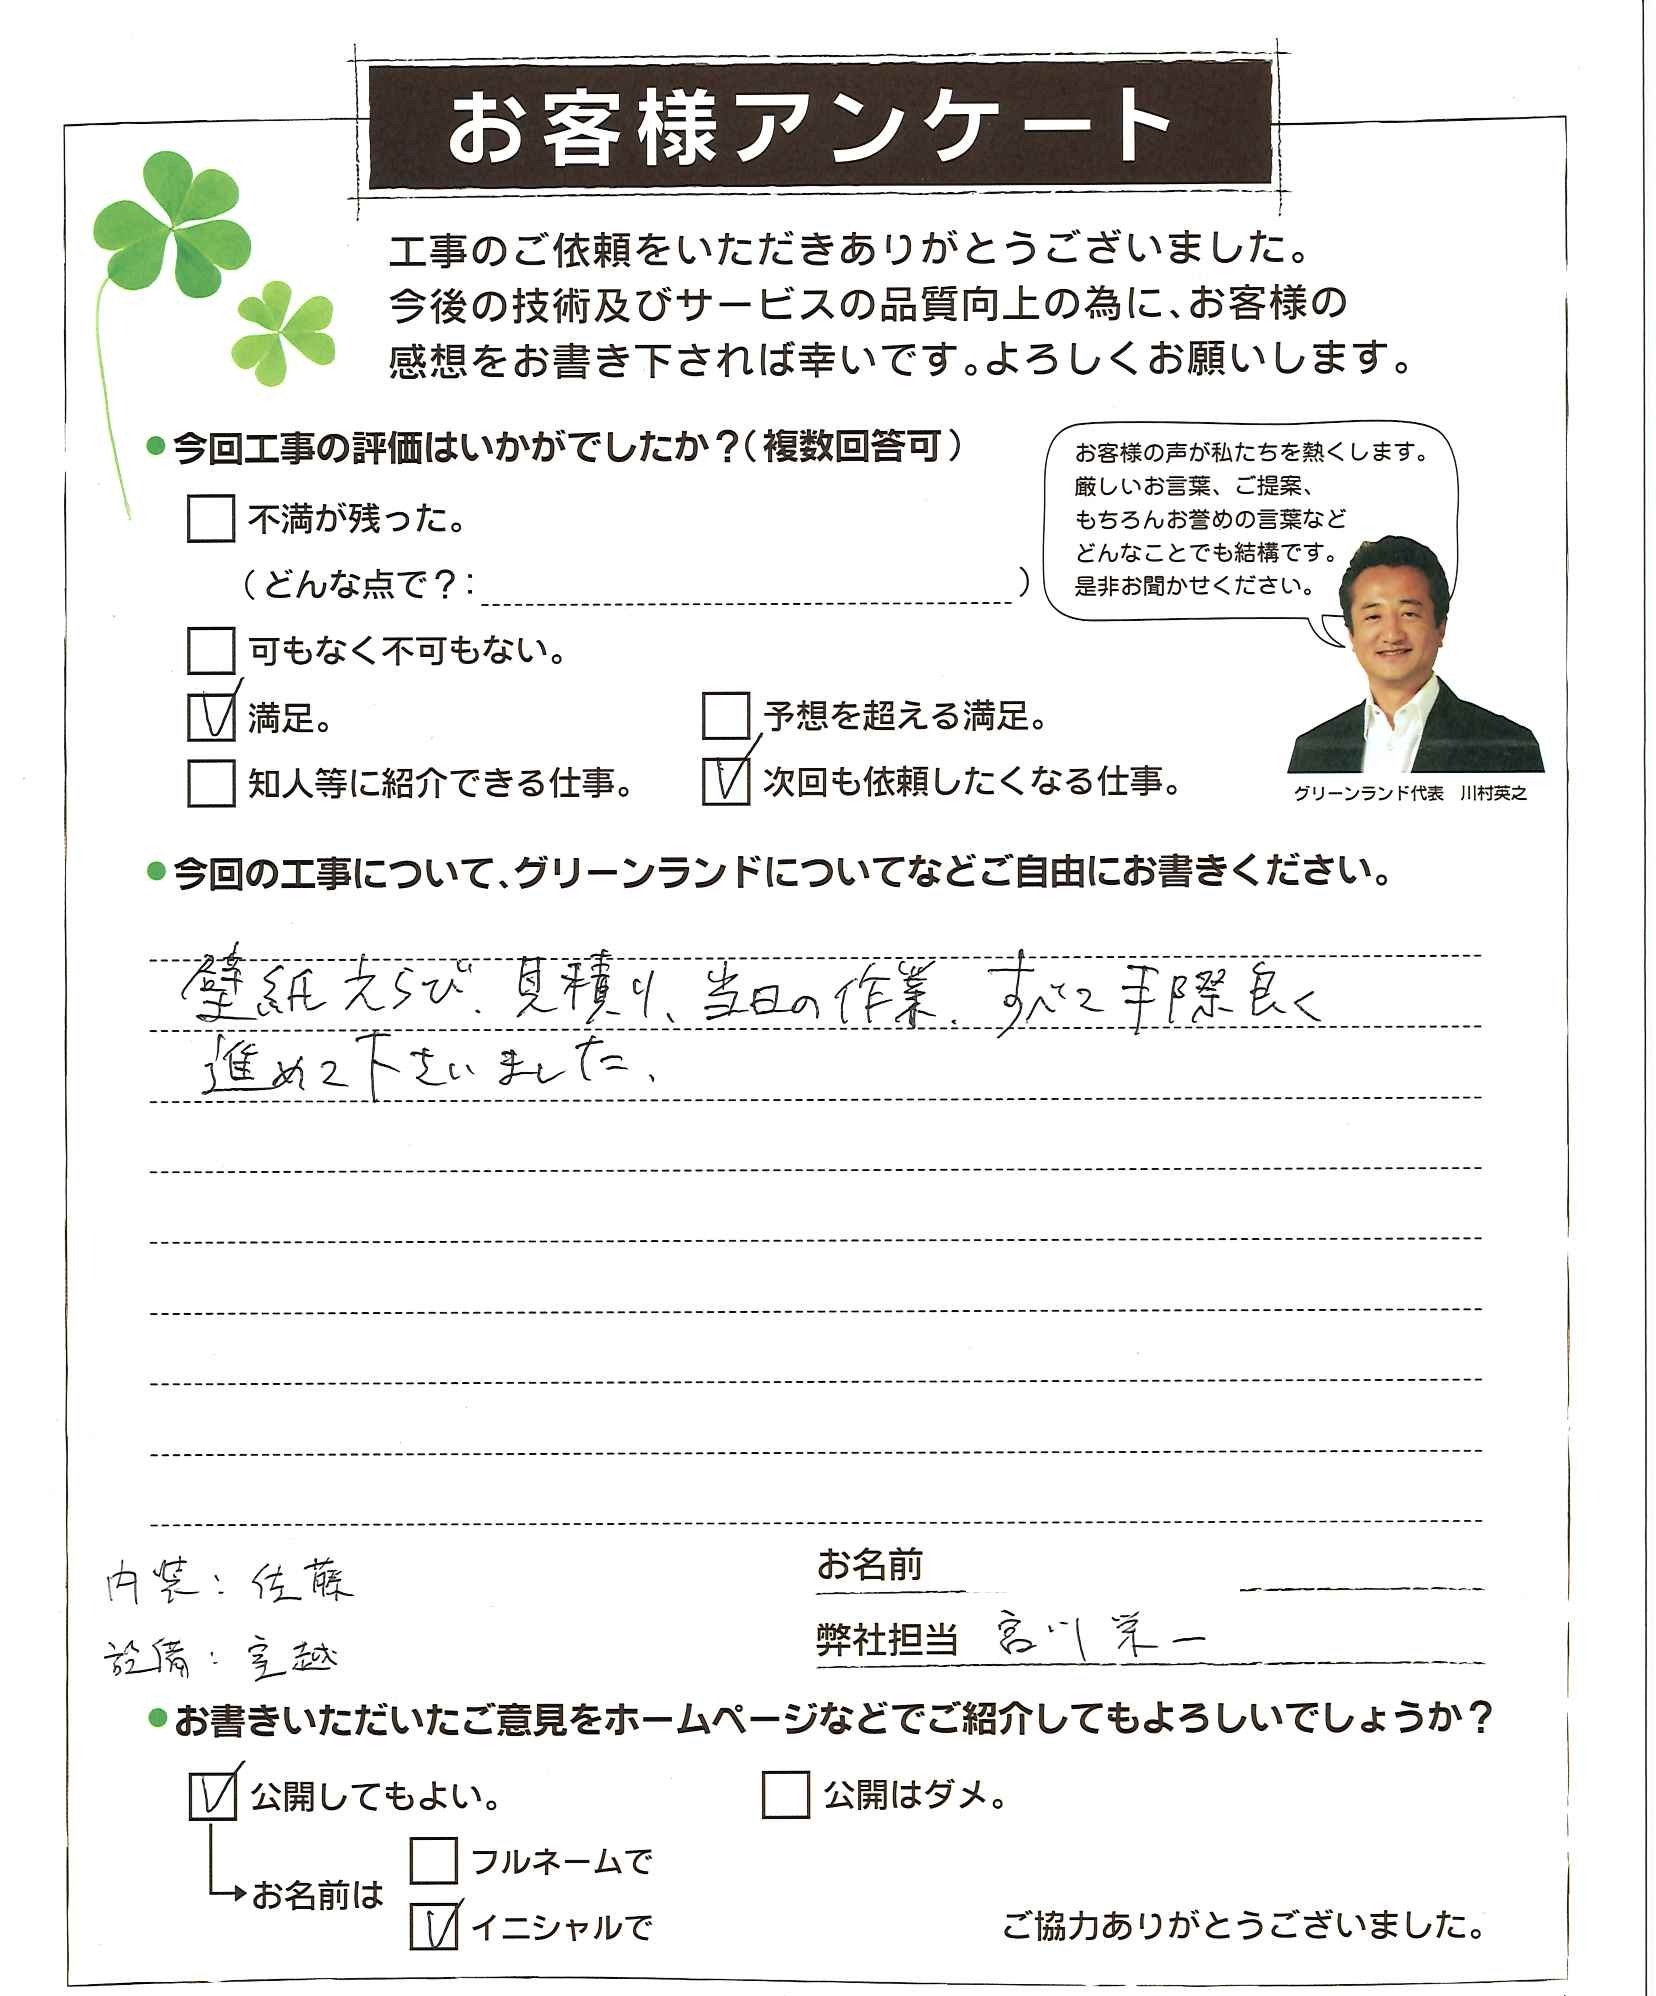 お客様アンケート
工事のご依頼をいただきありがとうございました。
今後の技術及びサービスの品質向上の為に、お客様の
感想をお書き下されば幸いです。よろしくお願いします。
●今回工事の評価はいかがでしたか？（複数回答可）
お客様の声が私たちを熱くします。
厳しいお言葉、ご提案、
もちろんお誉めの言葉など
どんなことでも結構です。
是非お聞かせください。
不満が残った。
（どんな点で？： ）
可もなく不可もない。
満足。
予想を超える満足。
知人等に紹介できる仕事。
次回も依頼したくなる仕事。
グリーンランド代表 川村英之
●今回の工事について、グリーンランドについてなどご自由にお書きください。
壁紙えらび、見積り、当日の作業、すべて手際良く
進めて下さいました、
内装：佐藤
設備：室越
お名前
弊社担当 宮川栄一
●お書きいただいたご意見をホームページなどでご紹介してもよろしいでしょうか？
公開してもよい。
公開はダメ。
お名前は
フルネームで
イニシャルで
ご協力ありがとうございました。